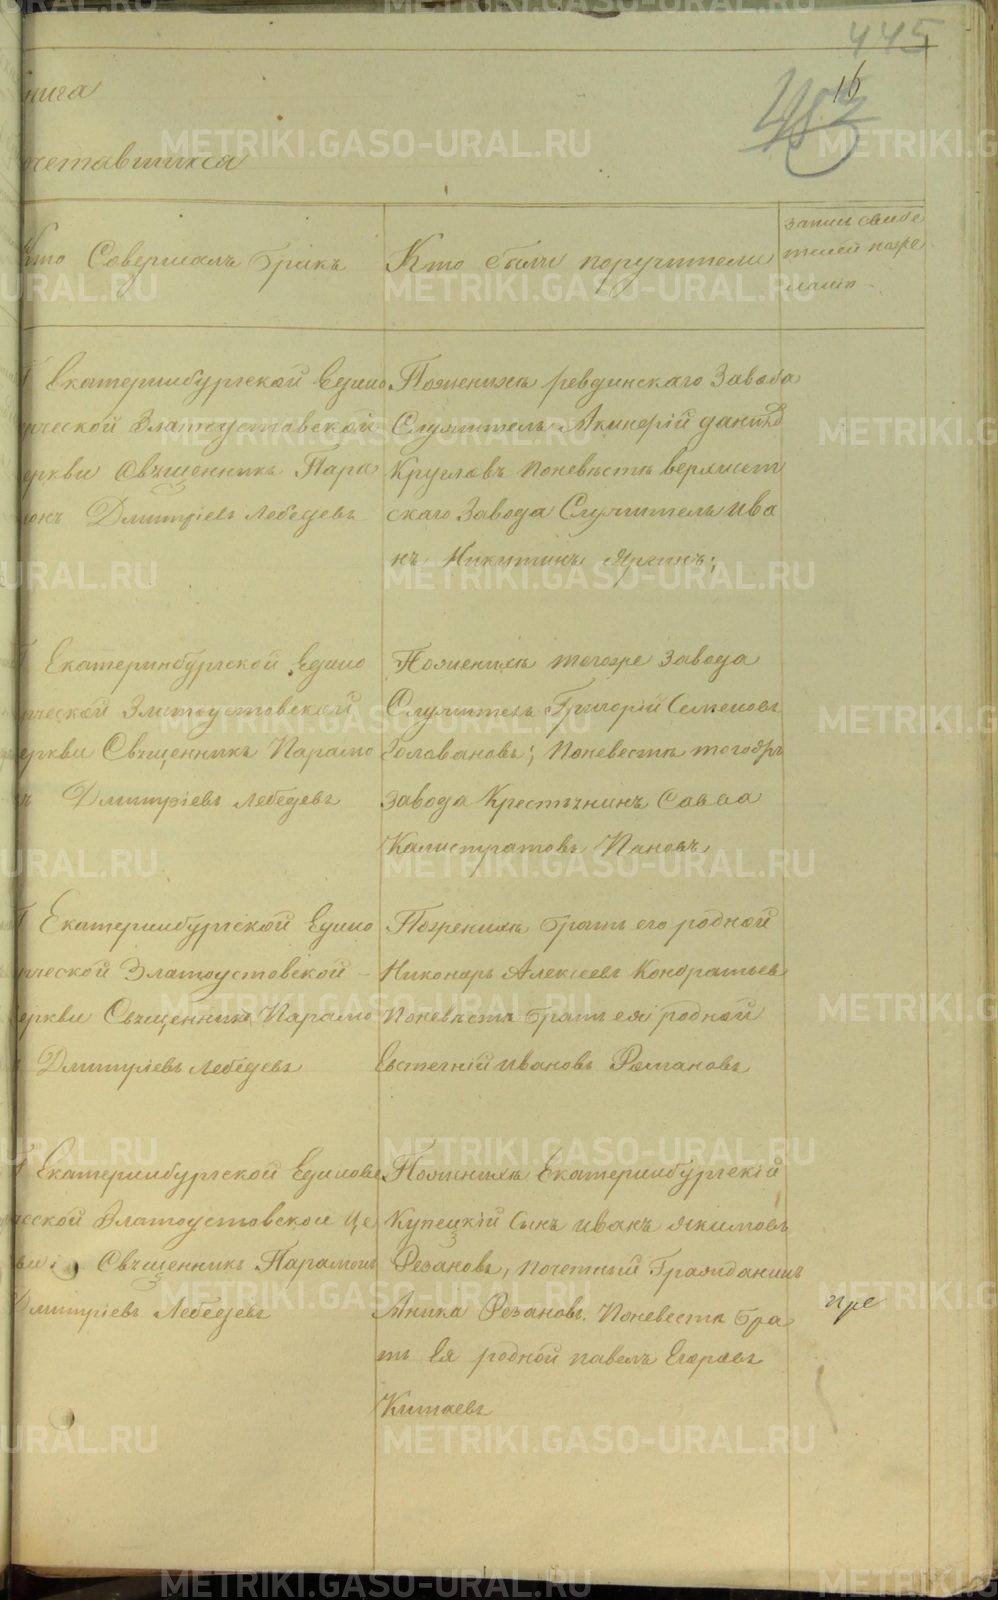 445
16
483
нига
очетавшихся
Кто Совершалъ Бракъ
Кто были поручители
запись свиде
телей пожре
ланію
Екатеринбургской Едино
рческой Златоустовской
еркви Свѣщенникъ Пара
монъ Дмитріевъ Лебедевъ
Поженихѣ ревдинскаго Завода
Служитель Акинфій данило
Кругловъ поневѣстѣ верхисет
скаго Завода Служитель ива
нъ Никитинъ Яргинъ;
Екатеринбургской Едино
рческой Златоустовской
еркви Свѣщенникъ Парамо
ъ Дмитріевъ лебедевъ
Поженихѣ тогоже завода
Служитель Григорій Семеновъ
Головановъ; поневестѣ тогоже
завода Крестьянинъ Савва
Калистратовъ Пановъ
Екатеринбургской Едино
рческой Златоустовской
еркви Свѣщенникъ Парамо
Дмитріевъ лебедевъ
Поженихѣ братъ его родной
Никоноръ Алексеевъ Кондратьев
поневѣстѣ братъ ея родной
Евстегній ивановъ Романовъ
Екатеринбургской Единове
ческой Златоустовской Це
кви Свѣщенникъ Парамонъ
Дмитріевъ Лебедевъ
Поженихѣ Екатеринбургскій
Купецкій Сынъ иванъ якимовъ
Резановъ, почетный Гражданинъ
Аника Резановъ. поневестѣ бра
тъ Ея родной павелъ Егоровъ
Китаевъ
пре
METRIKI.GASO-URAL.RU